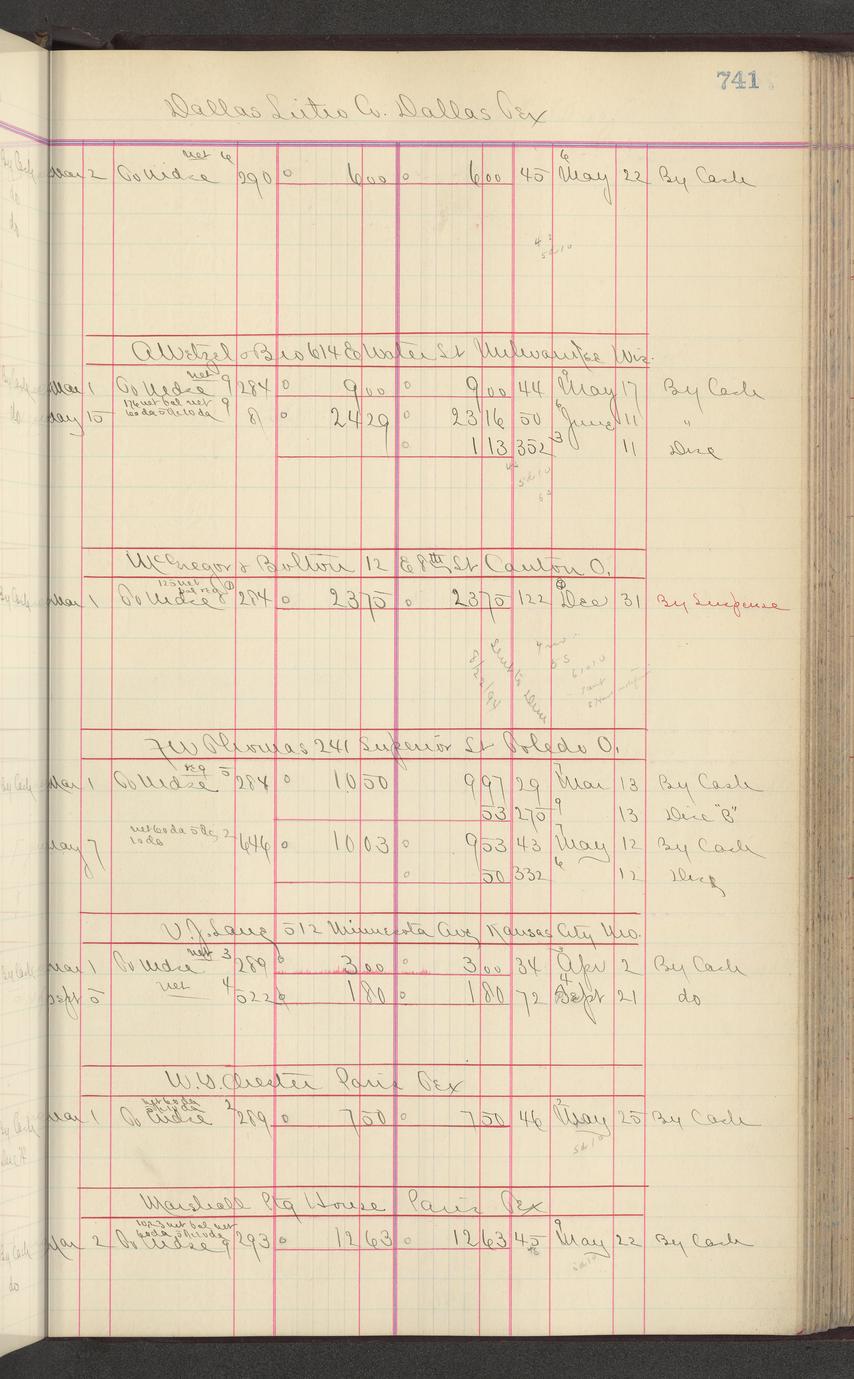 741
Dallas Litho Co. Dallas Tex
net 6
Mar 2 To Mdse 290 6 00 6 00 45 6 May 22 By Cash
A Wetzel & Bro 614 E Water St Milwaukee Wis.
net
Mar 1 To Mdse 9 284 9 00 9 00 44 9 May 17 By Cash
176 net bal net 9
May 15 60 da 5% 10 da 81 24 29 23 16 50 6 June 11 "
1 13 352 3 11 Disc
5% 10
McGregor & Bolton 12 E 8th St Canton O.
125 net
bal reg
Mar 1 To Mdse 284 23 75 23 75 122 Dec 31 By Suspense
Sent to
8/22/94
F W Thomas 241 Superior St Toledo O.
reg 5
Mar 1 To Mdse 284 10 50 9 97 29 7 Mar 13 By Cash
53 275 9 13 Disc "B"
net 60 da 5% 2
May 7 10 da 646 10 03 9 53 43 7 May 12 By Cash
50 332 6 12 Disc
V. J. Lang 512 Minnesota Ave Kansas City Mo.
net 3
Mar 1 To Mdse 289 3 00 3 00 34 3 Apr 2 By Cash
Sept 5 net 4 522 1 80 1 80 72 4 Sept 21 do
W. S. Chester Paris Tex
net 60 da
5% 10 da 2
Mar 1 To Mdse 289 7 50 7 50 46 2 May 25 By Cash
5% 10
Marshall Ptg House Paris Tex
1023 net bal net
60 da 5% 10 da
Mar 2 To Mdse 9 293 12 63 12 63 45 9 May 22 By Cash